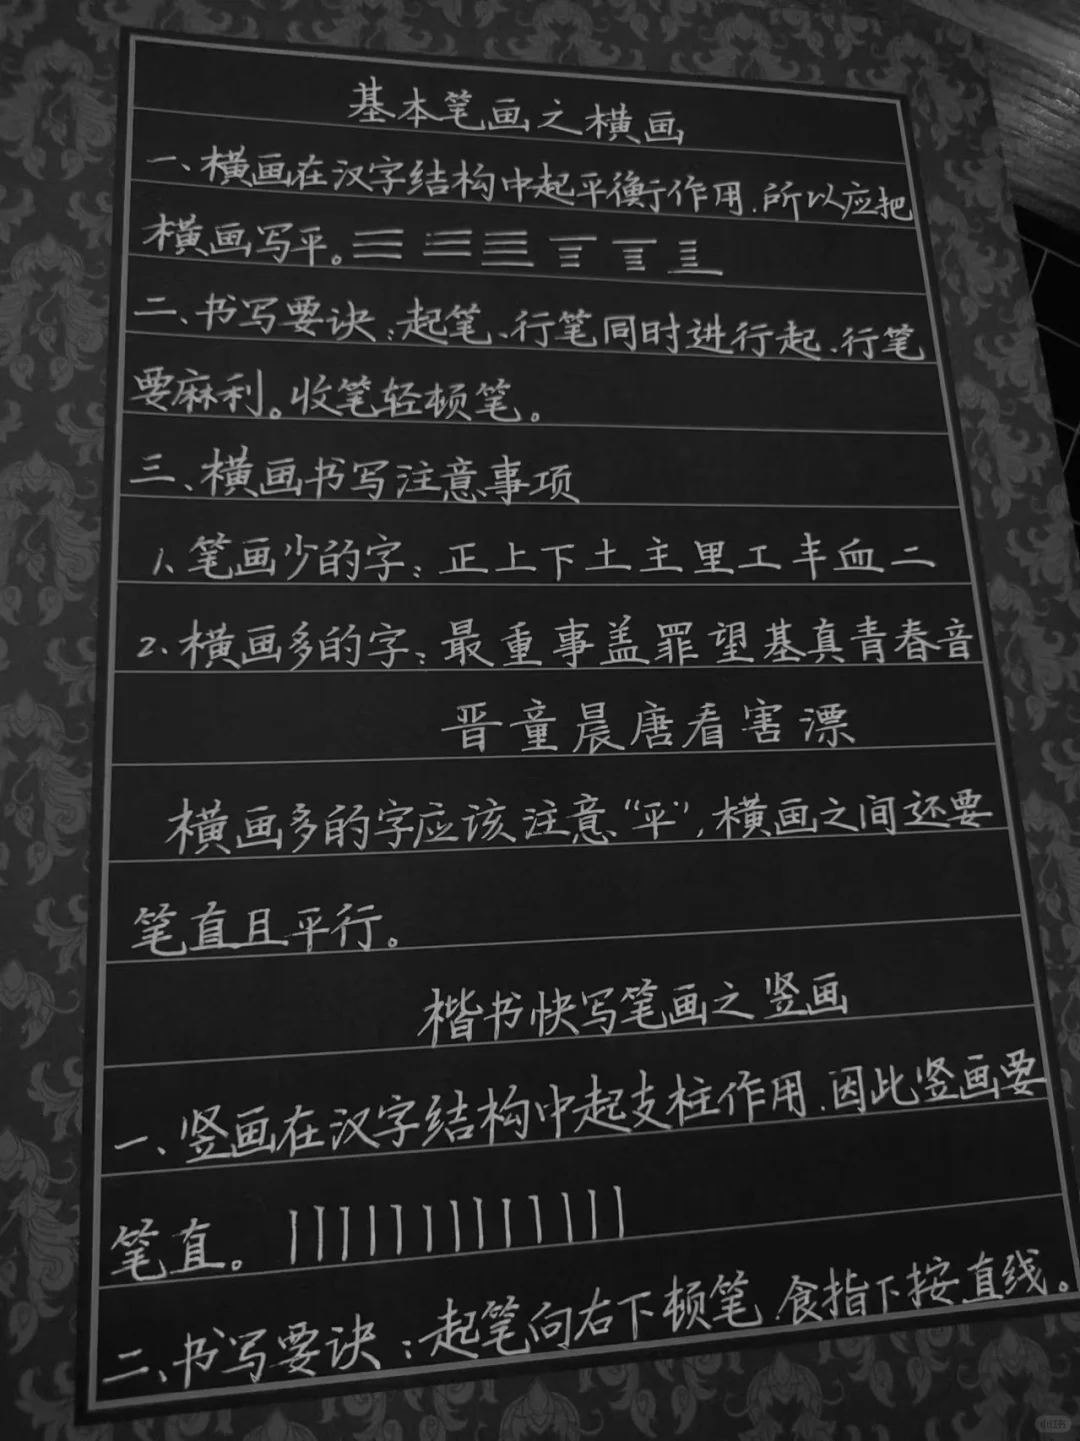 基本笔画之横画
一、横画在汉字结构中起平衡作用.所以应把
横画写平。
二、书写要诀:起笔、行笔同时进行起、行笔
要麻利。收笔轻顿笔。
三、横画书写注意事项
1、笔画少的字:正上下土主里工丰血二
2、横画多的字:最重事盖罪望基真青春音
晋童晨唐看害漂
横画多的字应该注意“平”,横画之间还要
笔直且平行。
楷书快写笔画之竖画
一、竖画在汉字结构中起支柱作用.因此竖画要
笔直。
二、书写要诀:起笔向右下顿笔.食指下按直线。
小红书